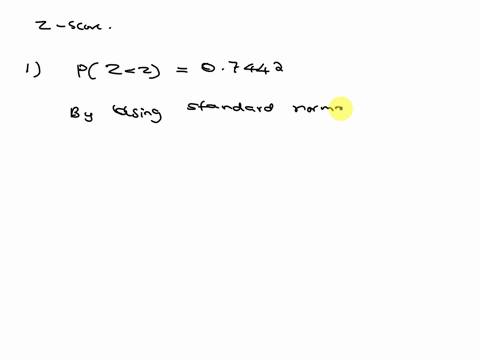 Z-score.
1) P(Z<z) = 0.7442
By Using standard norma